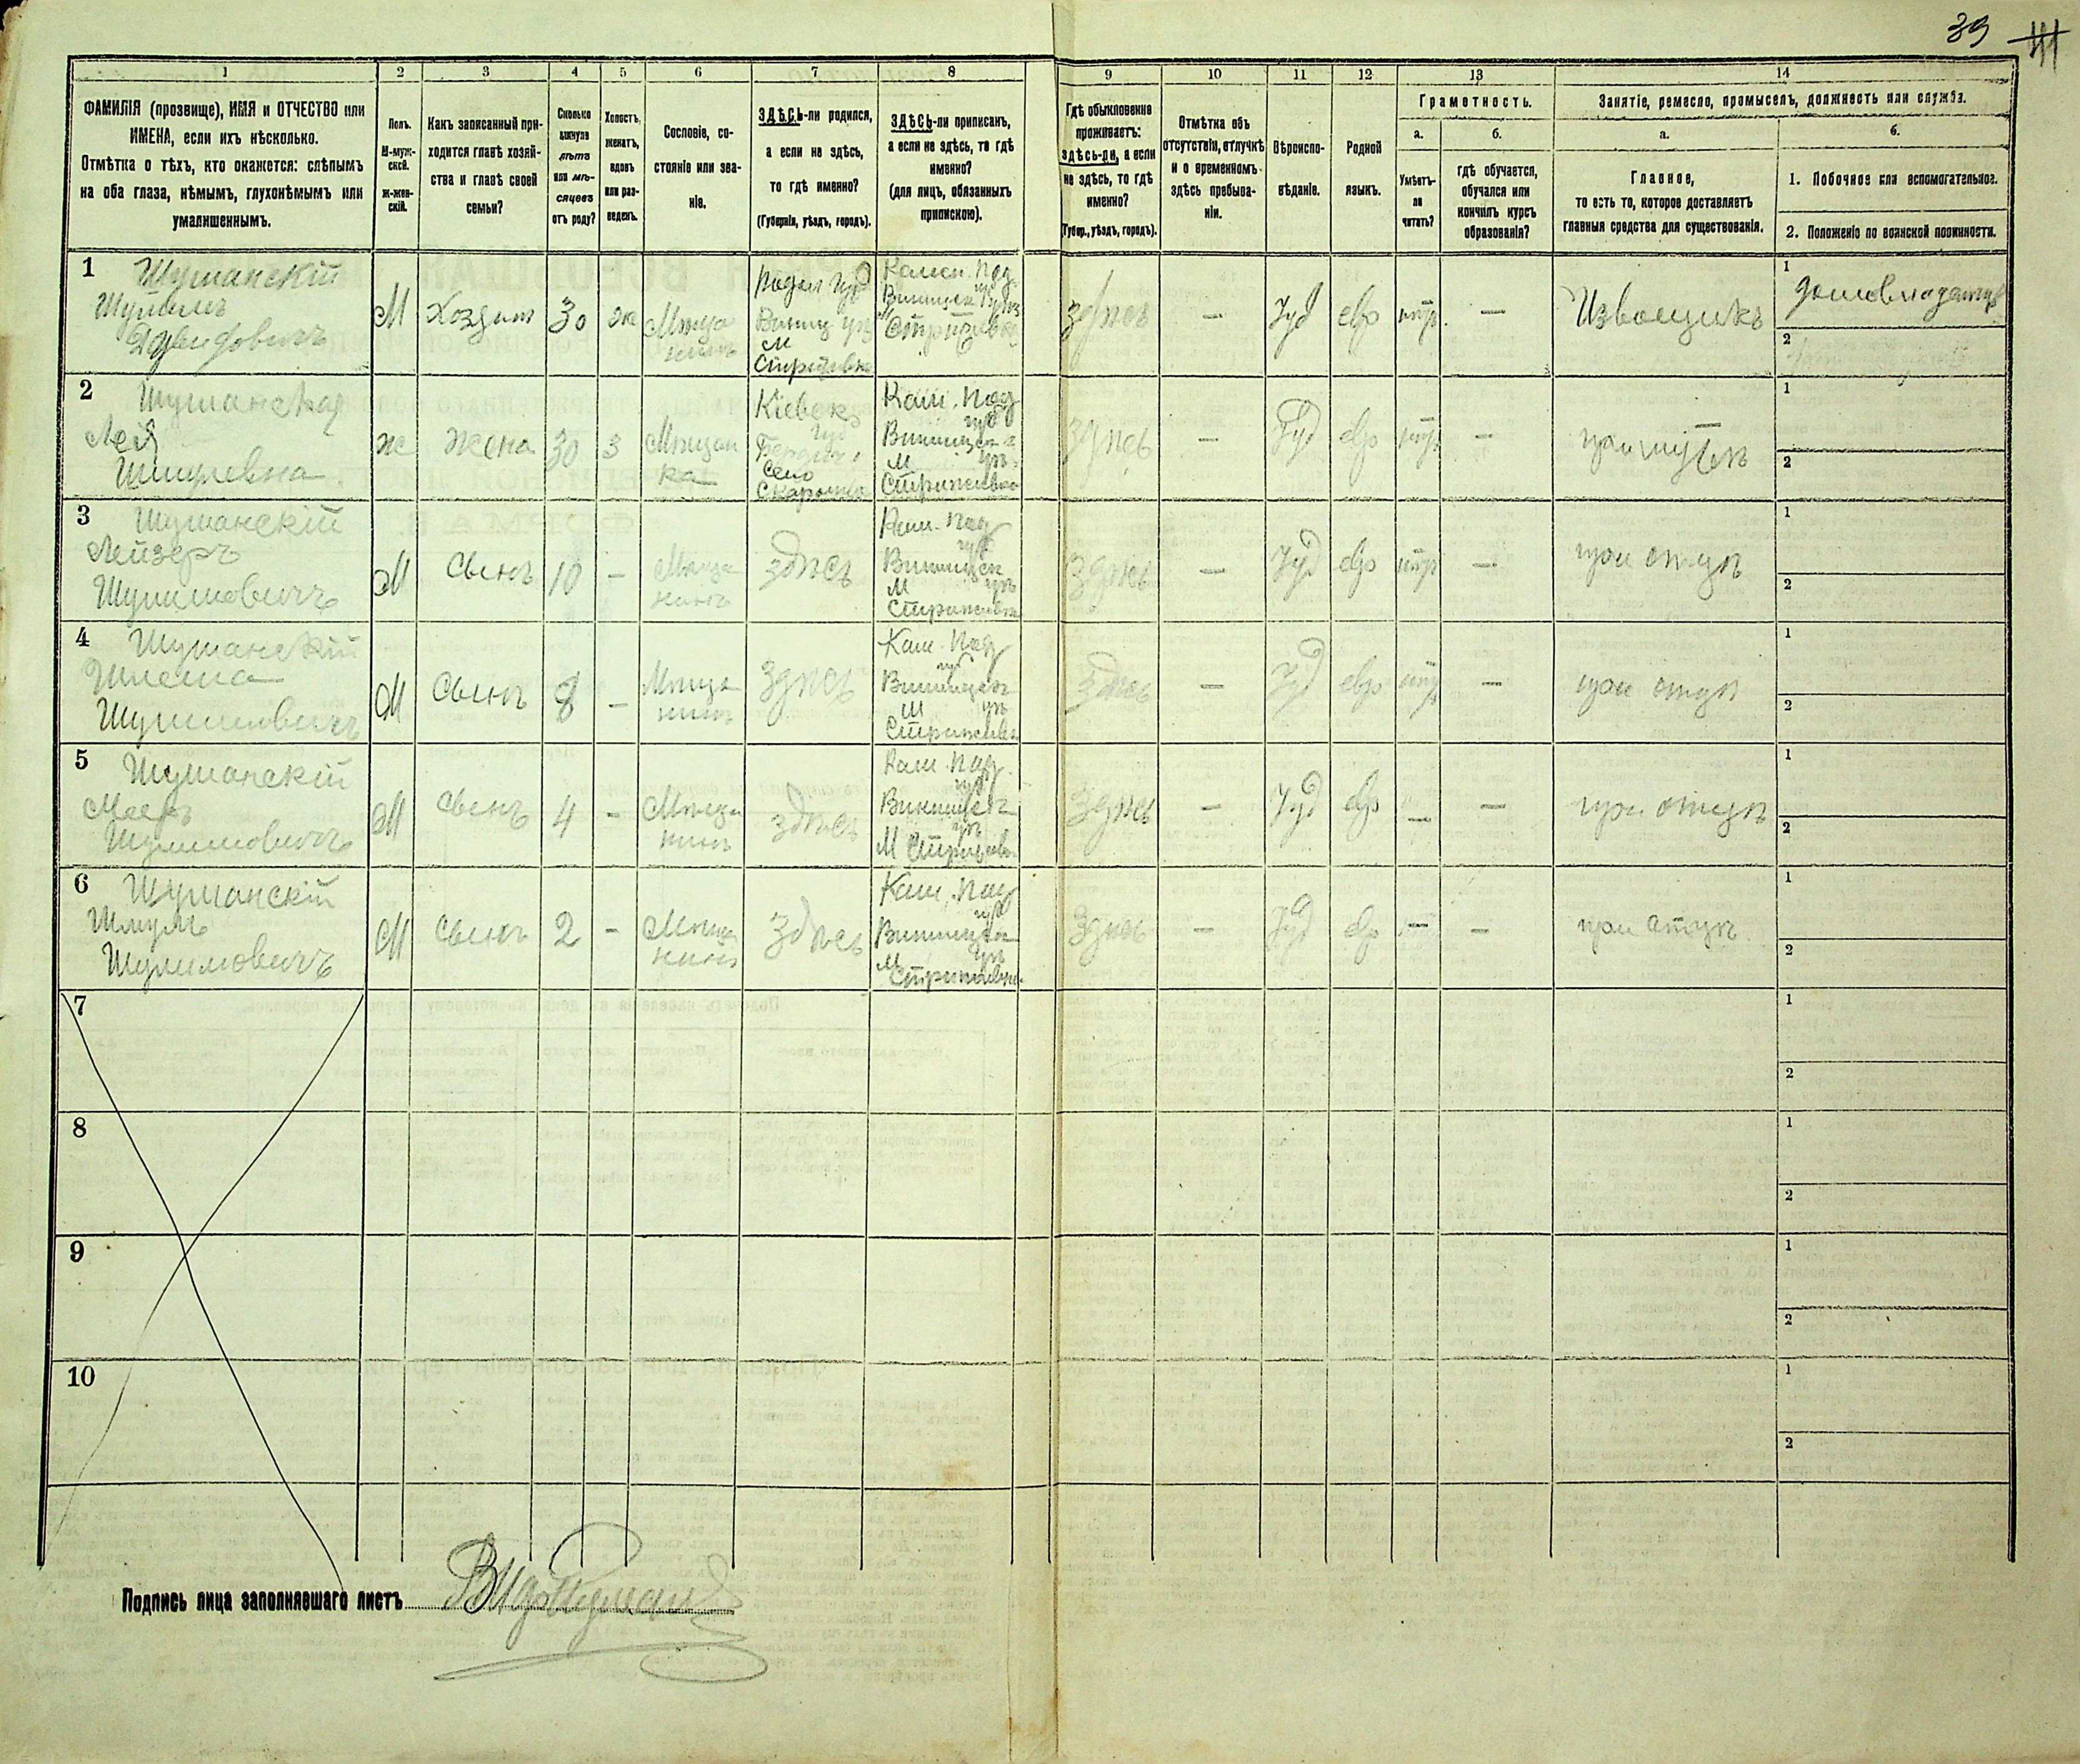 39
1 2 3 4 5 6 7 8 9 10 11 12 13 14
ФАМИЛІЯ (прозвище), ИМЯ и ОТЧЕСТВО или
ИМЕНА, если ихъ нѣсколько.
Отмѣтка о тѣхъ, кто окажется: слѣпымъ
на оба глаза, нѣмымъ, глухонѣмымъ или
умалишеннымъ.
Полъ.
М-муж-
ской.
Ж-жен-
скій.
Какъ записанный при-
ходится главѣ хозяй-
ства и главѣ своей
семьи?
Сколько
минуло
лѣтъ
или мѣ-
сяцевъ
отъ роду?
Холостъ,
женатъ,
вдовъ
или раз-
веденъ.
Сословіе, со-
стояніе или зва-
ніе.
ЗДѢСЬ-ли родился,
а если не здѣсь,
то гдѣ именно?
(Губернія, уѣздъ, городъ).
ЗДѢСЬ-ли приписанъ,
а если не здѣсь, то гдѣ
именно?
(для лицъ, обязанныхъ
припискою).
Гдѣ обыкновенно
проживаетъ:
здѣсь-ли, а если
не здѣсь, то гдѣ
именно?
(Губер., уѣздъ, городъ).
Отмѣтка объ
отсутствіи, отлучкѣ
и о временномъ
здѣсь пребыва-
ніи.
Вѣроиспо-
вѣданіе.
Родной
языкъ.
Грамотность.
а.
Умѣетъ-
ли
читать?
б.
гдѣ обучается,
обучался или
кончилъ курсъ
образованія?
Занятіе, ремесло, промыселъ, должность или служба.
а.
Главное,
то есть то, которое доставляетъ
главныя средства для существованія.
б.
1. Побочное или вспомогательное.
2. Положеніе по воинской повинности.
1 Шуманскій
Шулимъ
Давидовичъ
М
Хозяинъ
30
же
Мѣща
нинъ
Подол губ
Винниц уѣз
м
Камен. Под.
м
здѣсь
—
Іуд
евр
—
Извощикъ
1
2
2 Шуманская
Лея
ж
жена
30
з
Мѣщан
ка
Кіевск
губ
село
Кам. Под
губ
м
уѣз
здѣсь
—
Іуд
евр
—
при мужѣ
1
2
3 Шуманскій
Лейзеръ
Шулимовичъ
М
сынъ
10
—
Мѣща
нинъ
здѣсь
Кам. Под
губ
М
здѣсь
—
Іуд
евр
—
при отцѣ
1
2
4 Шуманскій
Шлема
Шулимовичъ
М
сынъ
8
—
Мѣща
нинъ
здѣсь
Кам. Под
губ
м
здѣсь
—
Іуд
евр
—
при отцѣ
1
2
5 Шуманскій
Шулимовичъ
М
сынъ
4
—
Мѣща
нинъ
здѣсь
Кам. Под.
губ
М
здѣсь
—
Іуд
евр
—
—
при отцѣ
1
2
6 Шуманскій
Шмуль
Шулимовичъ
М
сынъ
2
—
Мѣща
нинъ
здѣсь
Кам. Под
губ
м
здѣсь
—
Іуд
евр
—
—
при отцѣ
1
2
7
1
2
8
1
2
9
1
2
10
1
2
Подпись лица заполнявшаго листъ